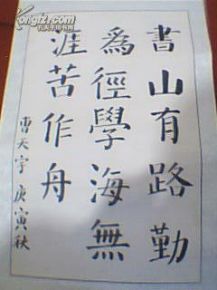 書山有路勤
為徑學海無
涯苦作舟
曹天宇庚寅秋